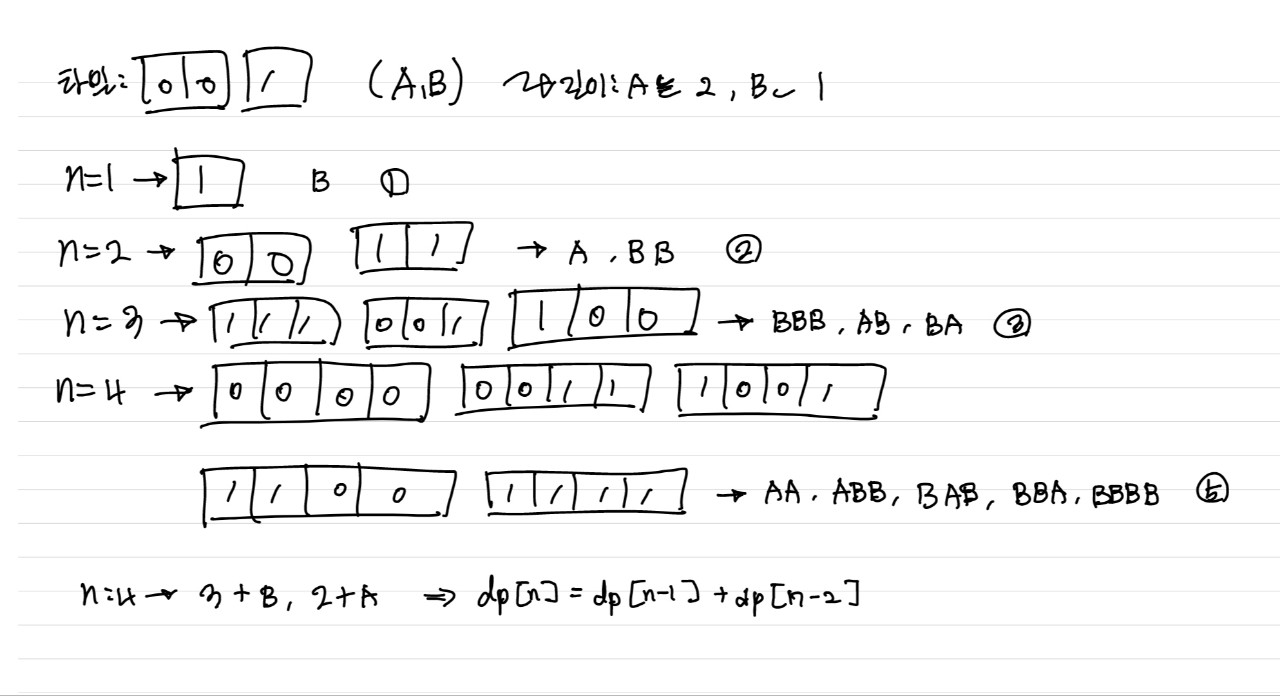 타일: 00 1 (A,B) 각 길이: A는 2, B는 1
n=1 → 1 B ①
n=2 → 00 11 → A, BB ②
n=3 → 111 001 100 → BBB, AB, BA ③
n=4 → 0000 0011 1001
1100 1111 → AA, ABB, BAB, BBA, BBBB ⑤
n=4 → 3+B, 2+A ⇒ dp[n] = dp[n-1] + dp[n-2]